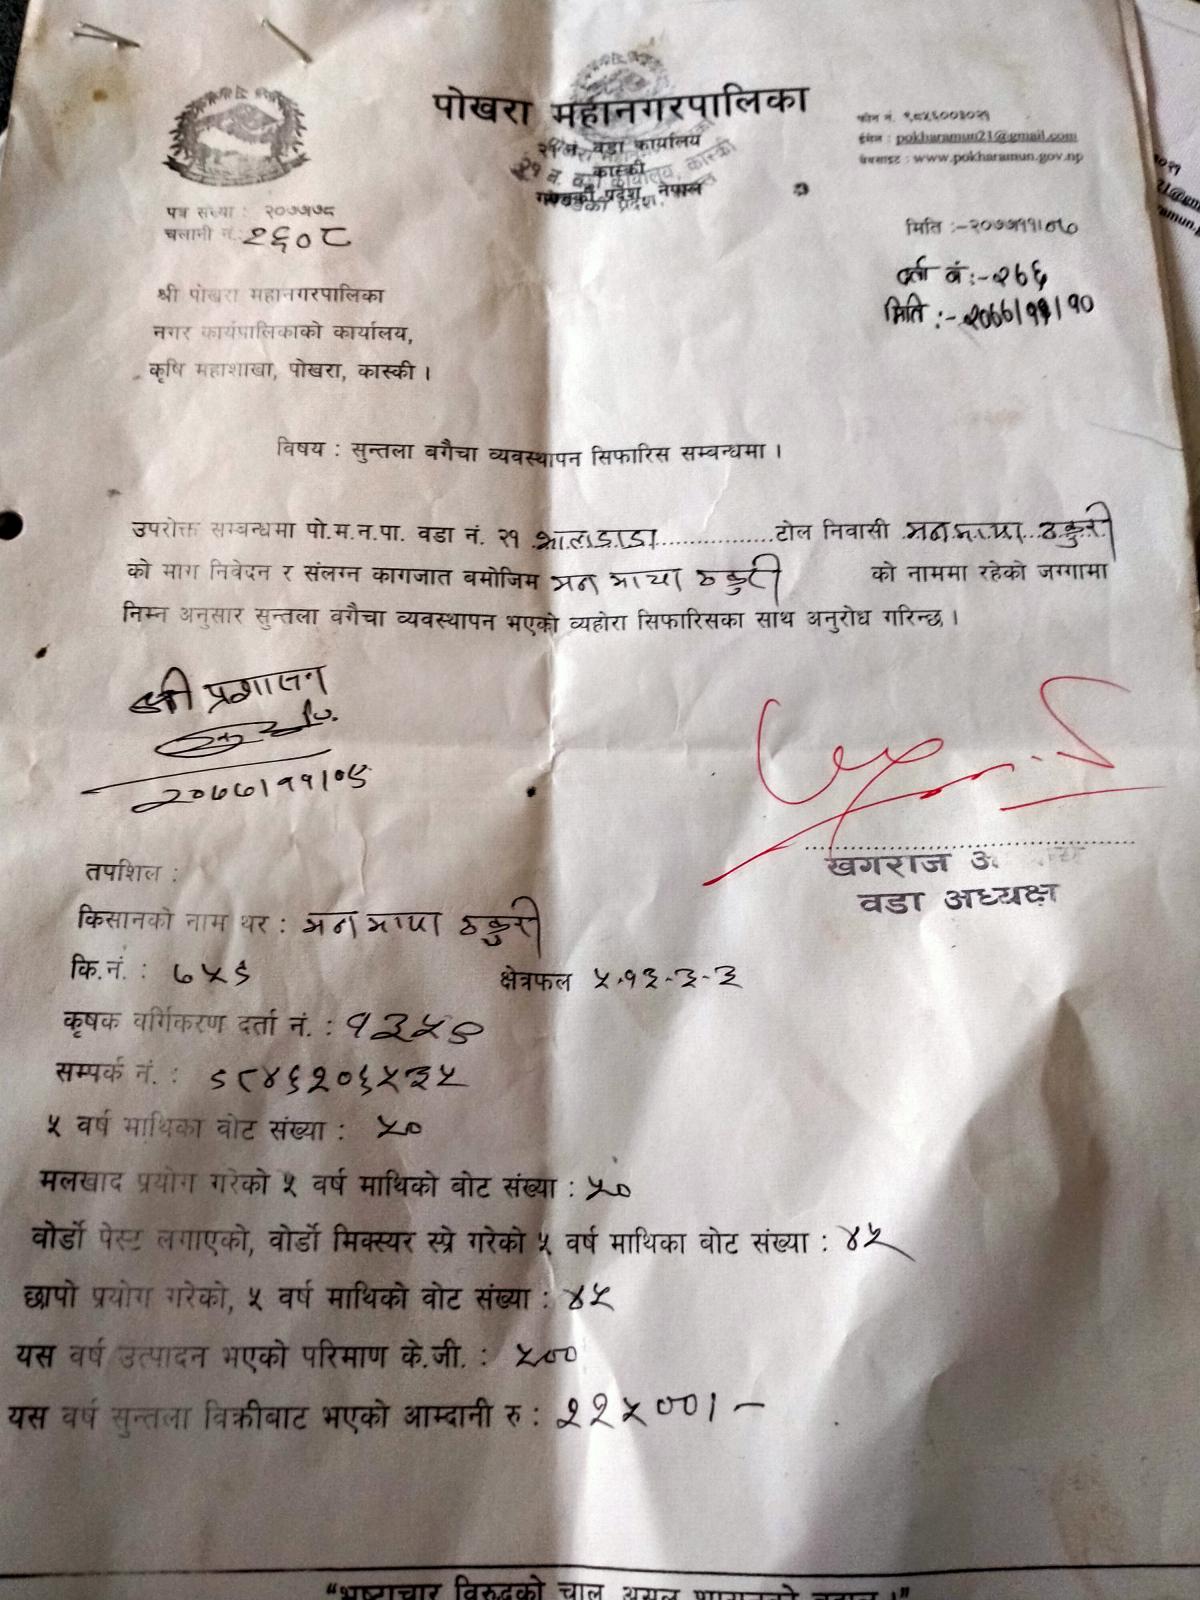 पोखरा महानगरपालिका
२१ नं. वडा कार्यालय
कास्की
गण्डकी प्रदेश, नेपाल
फोन नं. ९८५६००३०२१
ईमेल : pokharamun21@gmail.com
वेबसाइट : www.pokharamun.gov.np
पत्र संख्या : २०७७/७८
चलानी नं.: २६०८
मिति :-२०७७/११/०७
दर्ता नं:-२७६
मिति :- २०७७/११/१०
श्री पोखरा महानगरपालिका
नगर कार्यपालिकाको कार्यालय,
कृषि महाशाखा, पोखरा, कास्की ।
विषय : सुन्तला बगैचा व्यवस्थापन सिफारिस सम्बन्धमा ।
उपरोक्त सम्बन्धमा पो.म.न.पा. वडा नं. २१ ................टोल निवासी मन माया ठकुरी
को माग निवेदन र संलग्न कागजात बमोजिम मन माया ठकुरी को नाममा रहेको जग्गामा
निम्न अनुसार सुन्तला बगैचा व्यवस्थापन भएको व्यहोरा सिफारिसका साथ अनुरोध गरिन्छ ।
श्री प्रशासन
२०७७/११/०९
खगराज
वडा अध्यक्ष
तपशिल :
किसानको नाम थर : मन माया ठकुरी
कि.नं. : ७५९ क्षेत्रफल ५-१३-३-३
कृषक वर्गिकरण दर्ता नं. : १३५९
सम्पर्क नं. : ९८४६२०६५३५
५ वर्ष माथिका बोट संख्या : ५०
मलखाद प्रयोग गरेको ५ वर्ष माथिको बोट संख्या : ५०
बोर्डो पेस्ट लगाएको, बोर्डो मिक्स्चर स्प्रे गरेको ५ वर्ष माथिका बोट संख्या : ४५
छापो प्रयोग गरेको, ५ वर्ष माथिको बोट संख्या : ४५
यस वर्ष उत्पादन भएको परिमाण के.जी. : ५००
यस वर्ष सुन्तला विक्रीबाट भएको आम्दानी रु : २२५००।-
"भ्रष्टाचार विरुद्धको चाल